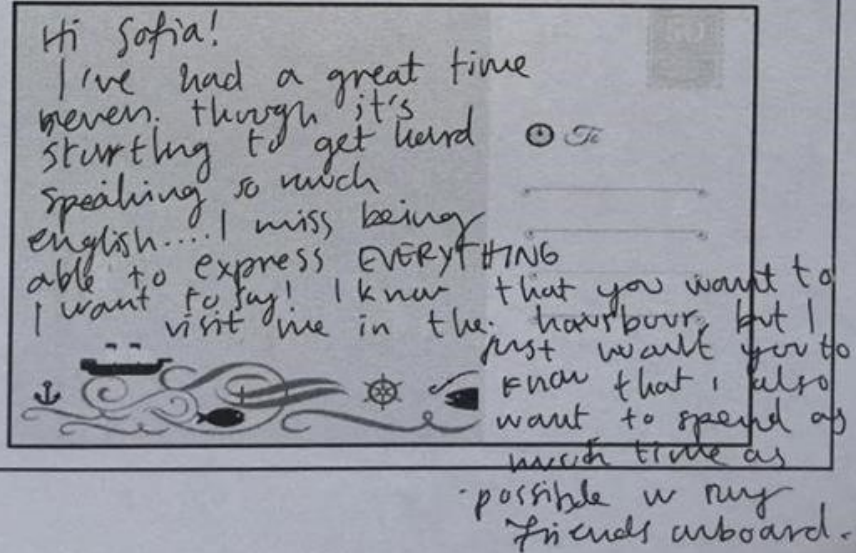 50
Hi Sofia!
I've had a great time
neven. though it's
starting to get hard
To
speaking so much
english....I miss being
able to express EVERYTHING
I want to say! I know that you want to
visit me in the harbour, but I
just want you to
know that i also
want to spend as
much time as
possible w my
friends onboard.